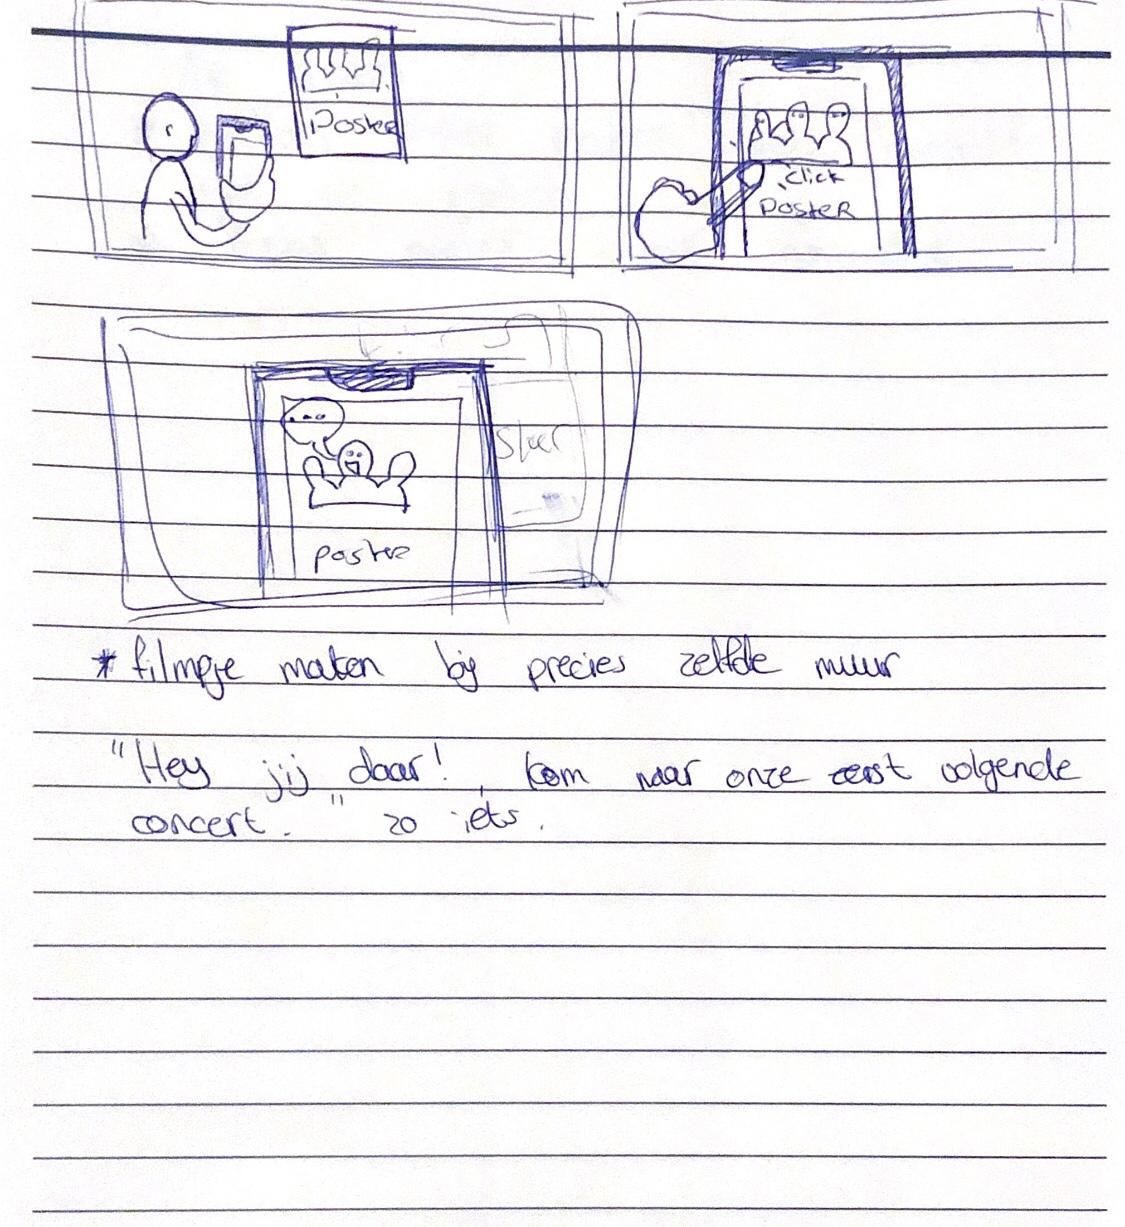 Poster
click
poster
poster
* filmpje maken bij precies zelfde muur
"Hey jij daar!, kom naar onze eerst volgende
concert." zo iets.